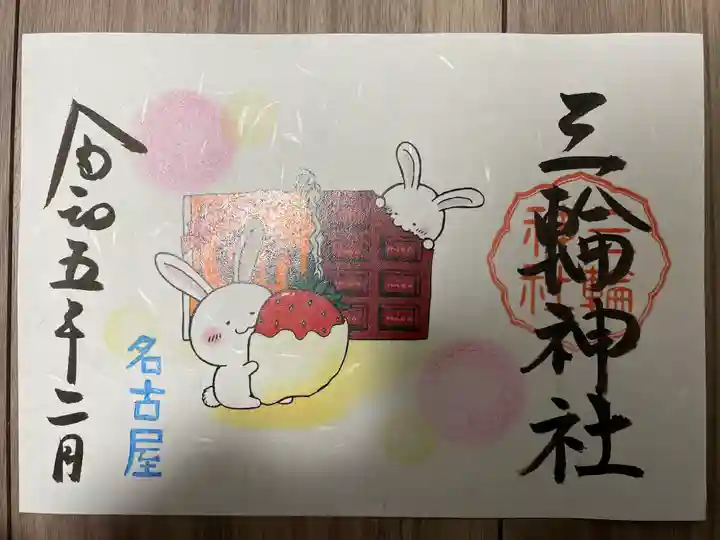 三輪神社
三輪
神社
令和五年二月
名古屋